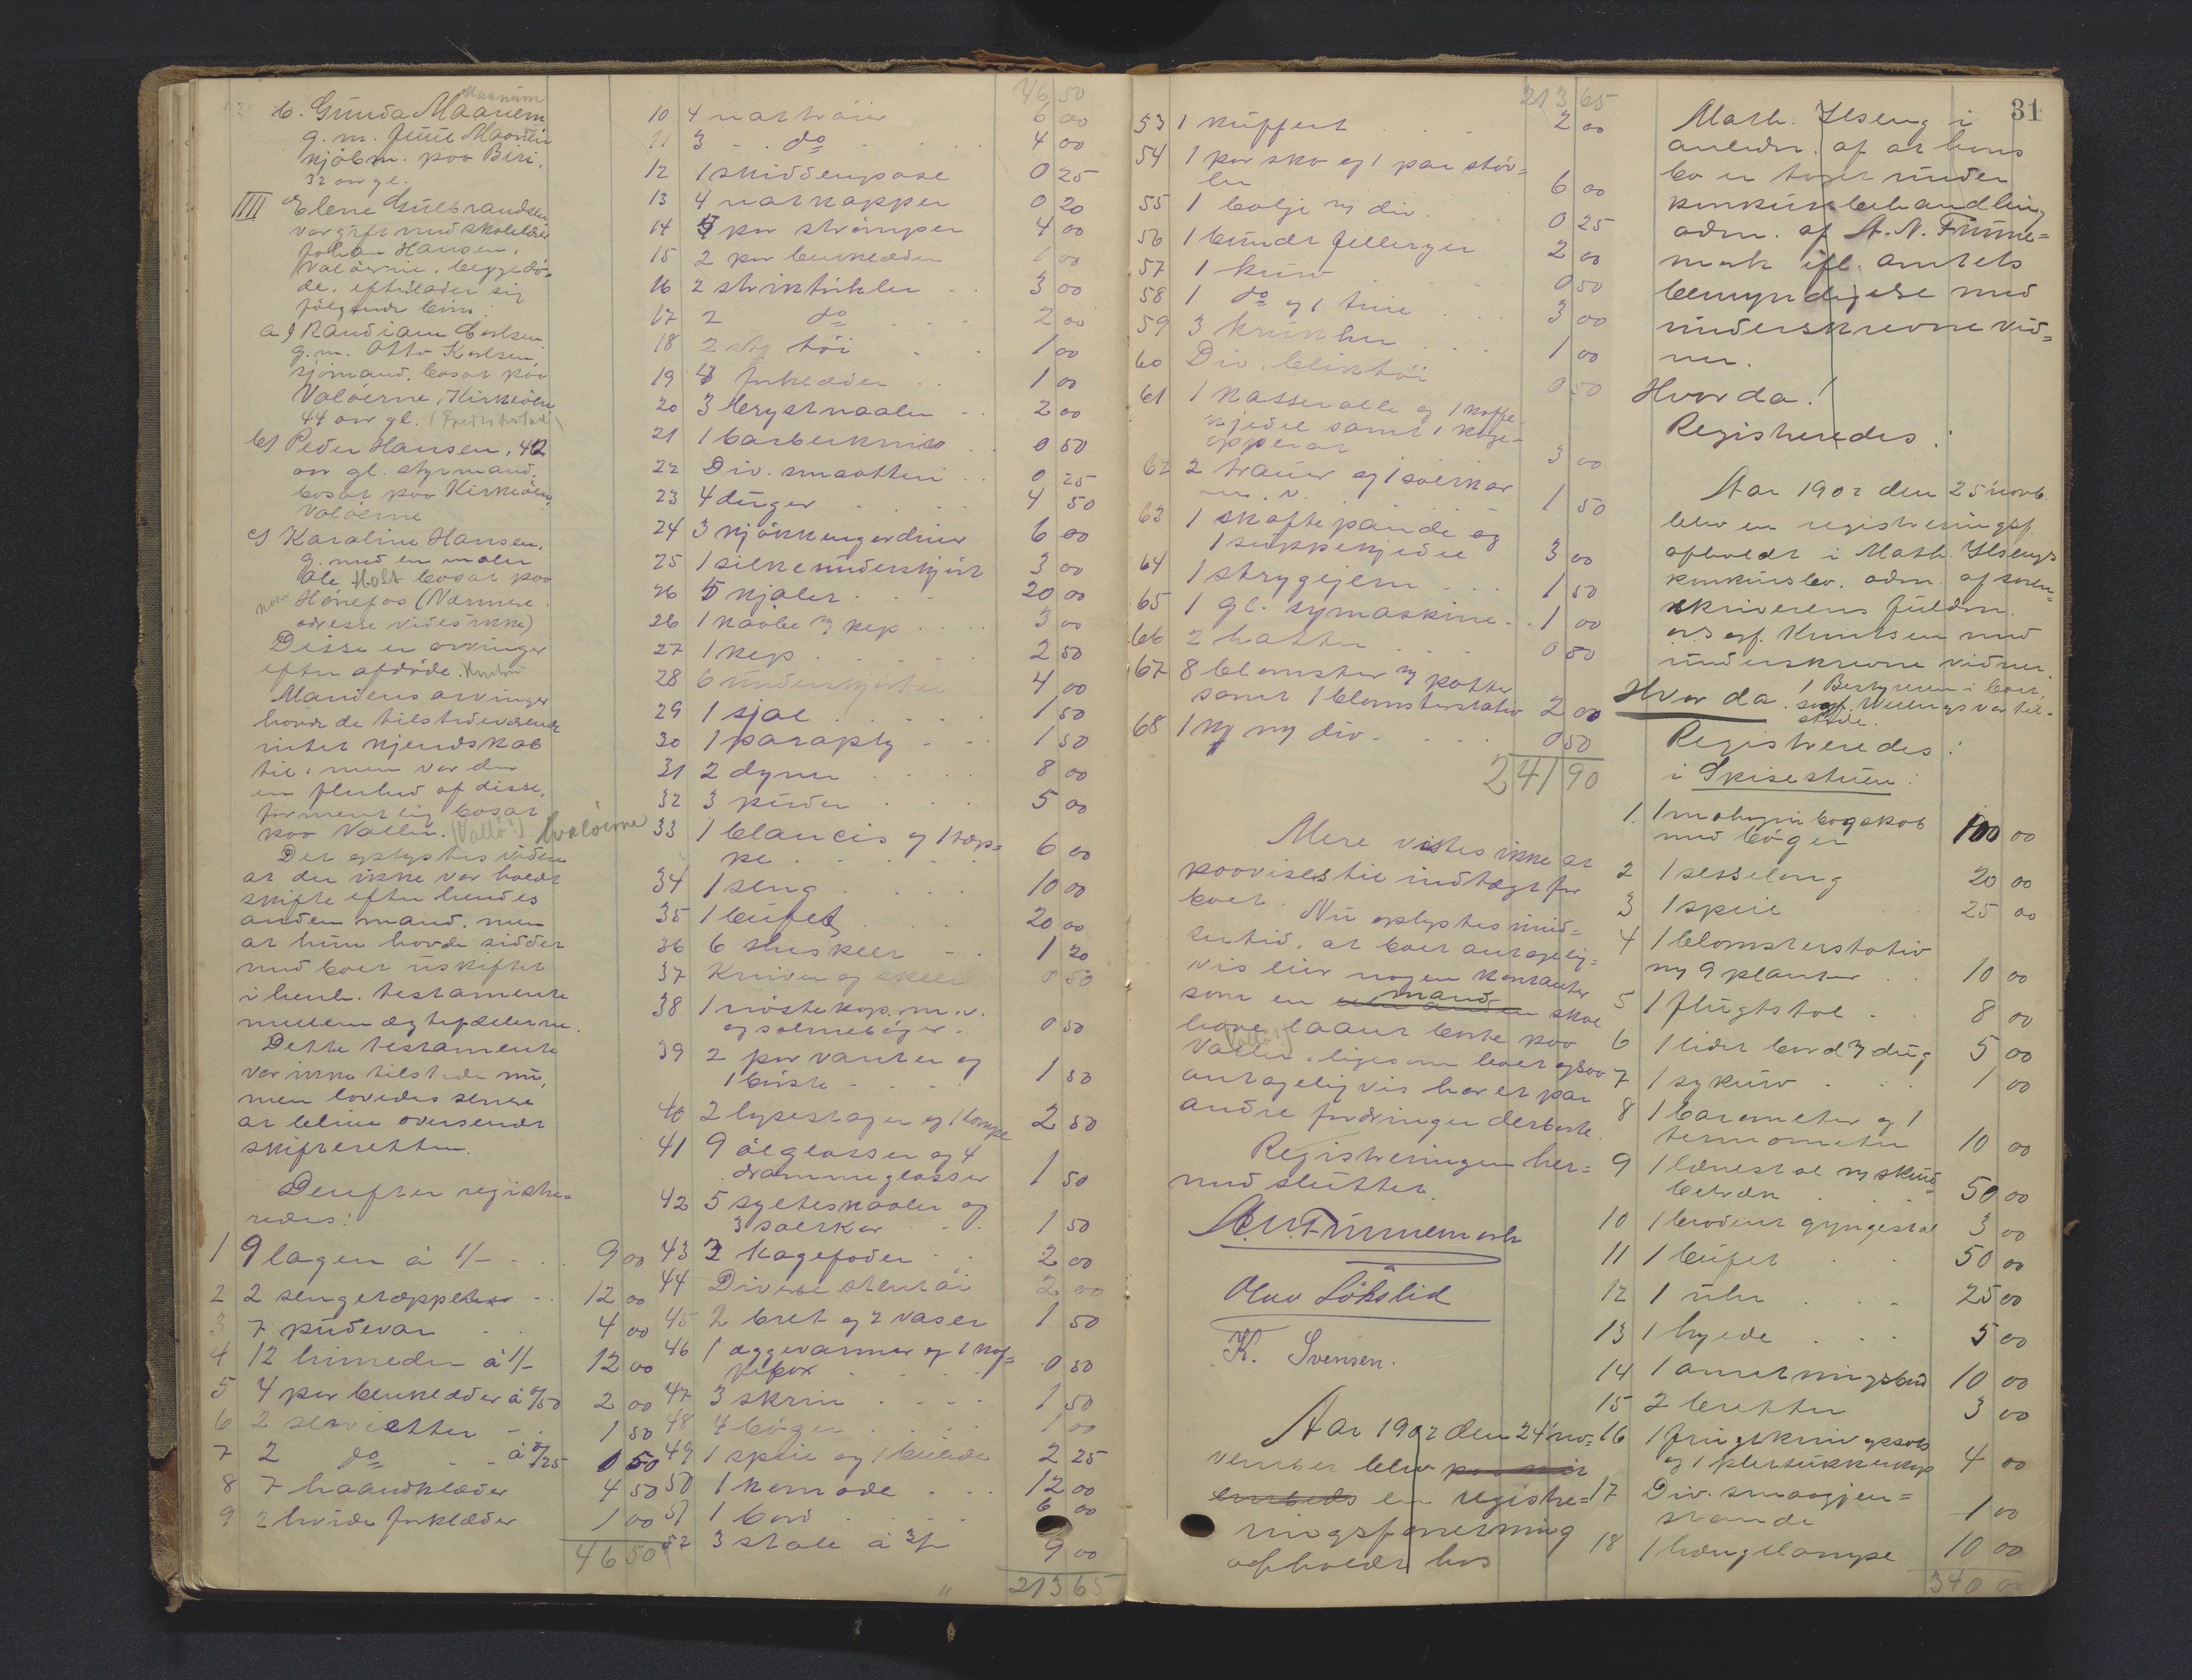 b. Gunda Maanum
g. m. Juul Maanum
kjøbm. paa Biri.
32 aar gl.
IIII Elene Gulbrandsen
var gift med skolelærer
Johan Hansen,
Valøerne, begge dø-
de. efterlader sig
følgende børn:
a) Karlsen
g. m. Otto Karlsen,
sjømand, bosat paa
Valøerne, Kirkeøen
44 aar gl. (Fredrikstad)
b) Peder Hansen, 42
aar gl. styrmand,
bosat paa Kirkeøen,
Valøerne
c) Karoline Hansen.
g. med en maler
Ole Holt bosat paa
Hønefos (Nærmere
adresse vides ikke)
Disse er arvinger
efter afdøde
Mandens arvinger
havde de tilstedeværende
intet kjendskab
til, men var der
en flerhed af disse,
formentlig bosat
paa Valler. (Vallø?) Hvaløerne
Det oplystes viden
at der ikke var holdt
skifte efter hendes
anden mand, men
at hun havde siddet
med boet uskiftet
i henh. testamente
mellem ægtefællerne.
Dette testamente
var ikke tilstede nu,
men lovedes senere
at blive oversendt
skifteretten.
Derefter registre-
redes:
1 9 lagen á 1/- 9 00
2 2 sengetæpper 12 00
3 7 pudevar 4 00
4 12 linneder á 1/- 12 00
5 4 par benklæder á 0/50 2 00
6 2 servietter 1 50
7 2 do á 0/25 0 50
8 7 haandklæder 4 50
9 2 hvide forklæder 1 00
46 50
46 50
10 4 nattrøier 6 00
11 3 do 4 00
12 1 skiddenpose 0 25
13 4 natkapper 0 20
14 4 par strømper 4 00
15 2 par benklæder 1 00
16 2 striktrikler 3 00
17 2 do 2 00
18 2 stk tøi 1 00
19 4 forklæder 1 00
20 3 brystnaaler 2 00
21 1 barberkniv 0 50
22 Div. smaatteri 0 25
23 4 duger 4 50
24 3 kjøkkengardiner 6 00
25 1 silkeunderskjørt 3 00
26 5 kjoler 20 00
26 1 kaabe & kep 3 00
27 1 kep 2 50
28 6 underskjørter 4 00
29 1 sjal 1 50
30 1 paraply 1 50
31 2 dyner 8 00
32 3 puder 5 00
33 1 blancis og 1 tæp=
pe 6 00
34 1 seng 10 00
35 1 bufet 20 00
36 6 theskeer 1 20
37 Kniver og skeer 0 50
38 1 riostekop. m. v.
og salmebøger 0 50
39 2 par vanter og
1 børste 1 50
40 2 lysestager og 1 lampe 2 50
41 9 ølglasser og 4
drammeglasser 1 50
42 5 sylteskaaler og
3 saltkar 1 50
43 2 kagefader 2 00
44 Diverse stentøi 2 00
45 2 bret og 2 vaser 1 50
46 1 æggevarmer og 1 kaf=
0 50
47 3 skrin 1 50
48 4 bøger 1 00
49 1 speil og 1 billede 2 25
50 1 komode 12 00
51 1 bord 6 00
52 3 stole á 3/- 9 00
213 65
31
213 65
53 1 kuffert 2 00
54 1 par sko og 1 par støv=
ler 6 00
55 1 balje & div. 0 25
56 1 bundt filleryer 2 00
57 1 kurv 0 50
58 1 do og 1 tine 3 00
59 3 krukker 1 00
60 Div. bliktøi 0 50
61 1 kasserolle og 1 kaffe-
kjedel samt 1 koge-
apparat 3 00
62 2 trauer og 1 saltkar
m. v. 1 50
63 1 skaftepande og
1 suppekjedel 3 00
64 1 strygejern 1 50
65 1 gl. symaskine 1 00
66 2 hatter 0 50
67 8 blomster & potter
samt 1 blomsterstativ 2 00
68 1 ny div. 0 50
241 90
Mere vistes ikke at
paavises til indtægt for
boet. Nu oplystes imid=
lertid, at boet antagelig=
vis eier nogen kontanter
som en mand skal
have laant borte paa
Valler (Vallø?), ligesom boet ogsaa
antagelig vis har et par
andre fordringer derborte.
Registreringen her=
med sluttet.
A. N. Finnemark
Olav Løkslid
K. Svensen.
Aar 1902 den 24 no=
vember blev paa mit
embeds en registre=
ringsforretning
afholdt hos
Math. Ilseng i
anledn. af at hans
bo er taget under
konkursbehandling
adm. af A. N. Finne=
mark ifl. amtets
bemyndigelse med
underskrevne vid=
ner.
Hvorda!
Registreredes:
Aar 1902 den 25 novb.
blev en registreringsf.
afholdt i Math. Ilsengs
konkursbo. adm. af soren=
skriverens fuldm.
Knutsen med
underskrevne vidner.
Hvor da. 1 Bestyreren i boet,
sagf. Wellings var til-
stede.
Registreredes:
i Spisestuen:
1. 1 mahogni bogskab
med bøger 100 00
2 1 sesselong 20 00
3 1 speil 25 00
4 1 blomsterstativ
& 9 planter 10 00
5 1 flugtstol 8 00
6 1 lidet bord & dug 5 00
7 1 sykurv 1 00
8 1 barometer og 1
termometer 10 00
9 1 lænestol & skind=
betræk 50 00
10 1 broderet gyngestol 3 00
11 1 bufet 50 00
12 1 uhr 25 00
13 1 hylde 5 00
14 1 anretningsbord 10 00
15 2 bretter 3 00
16 1
og 1 4 00
17 Div. smaagjen=
stande 1 00
18 1 hængelampe 10 00
340 00